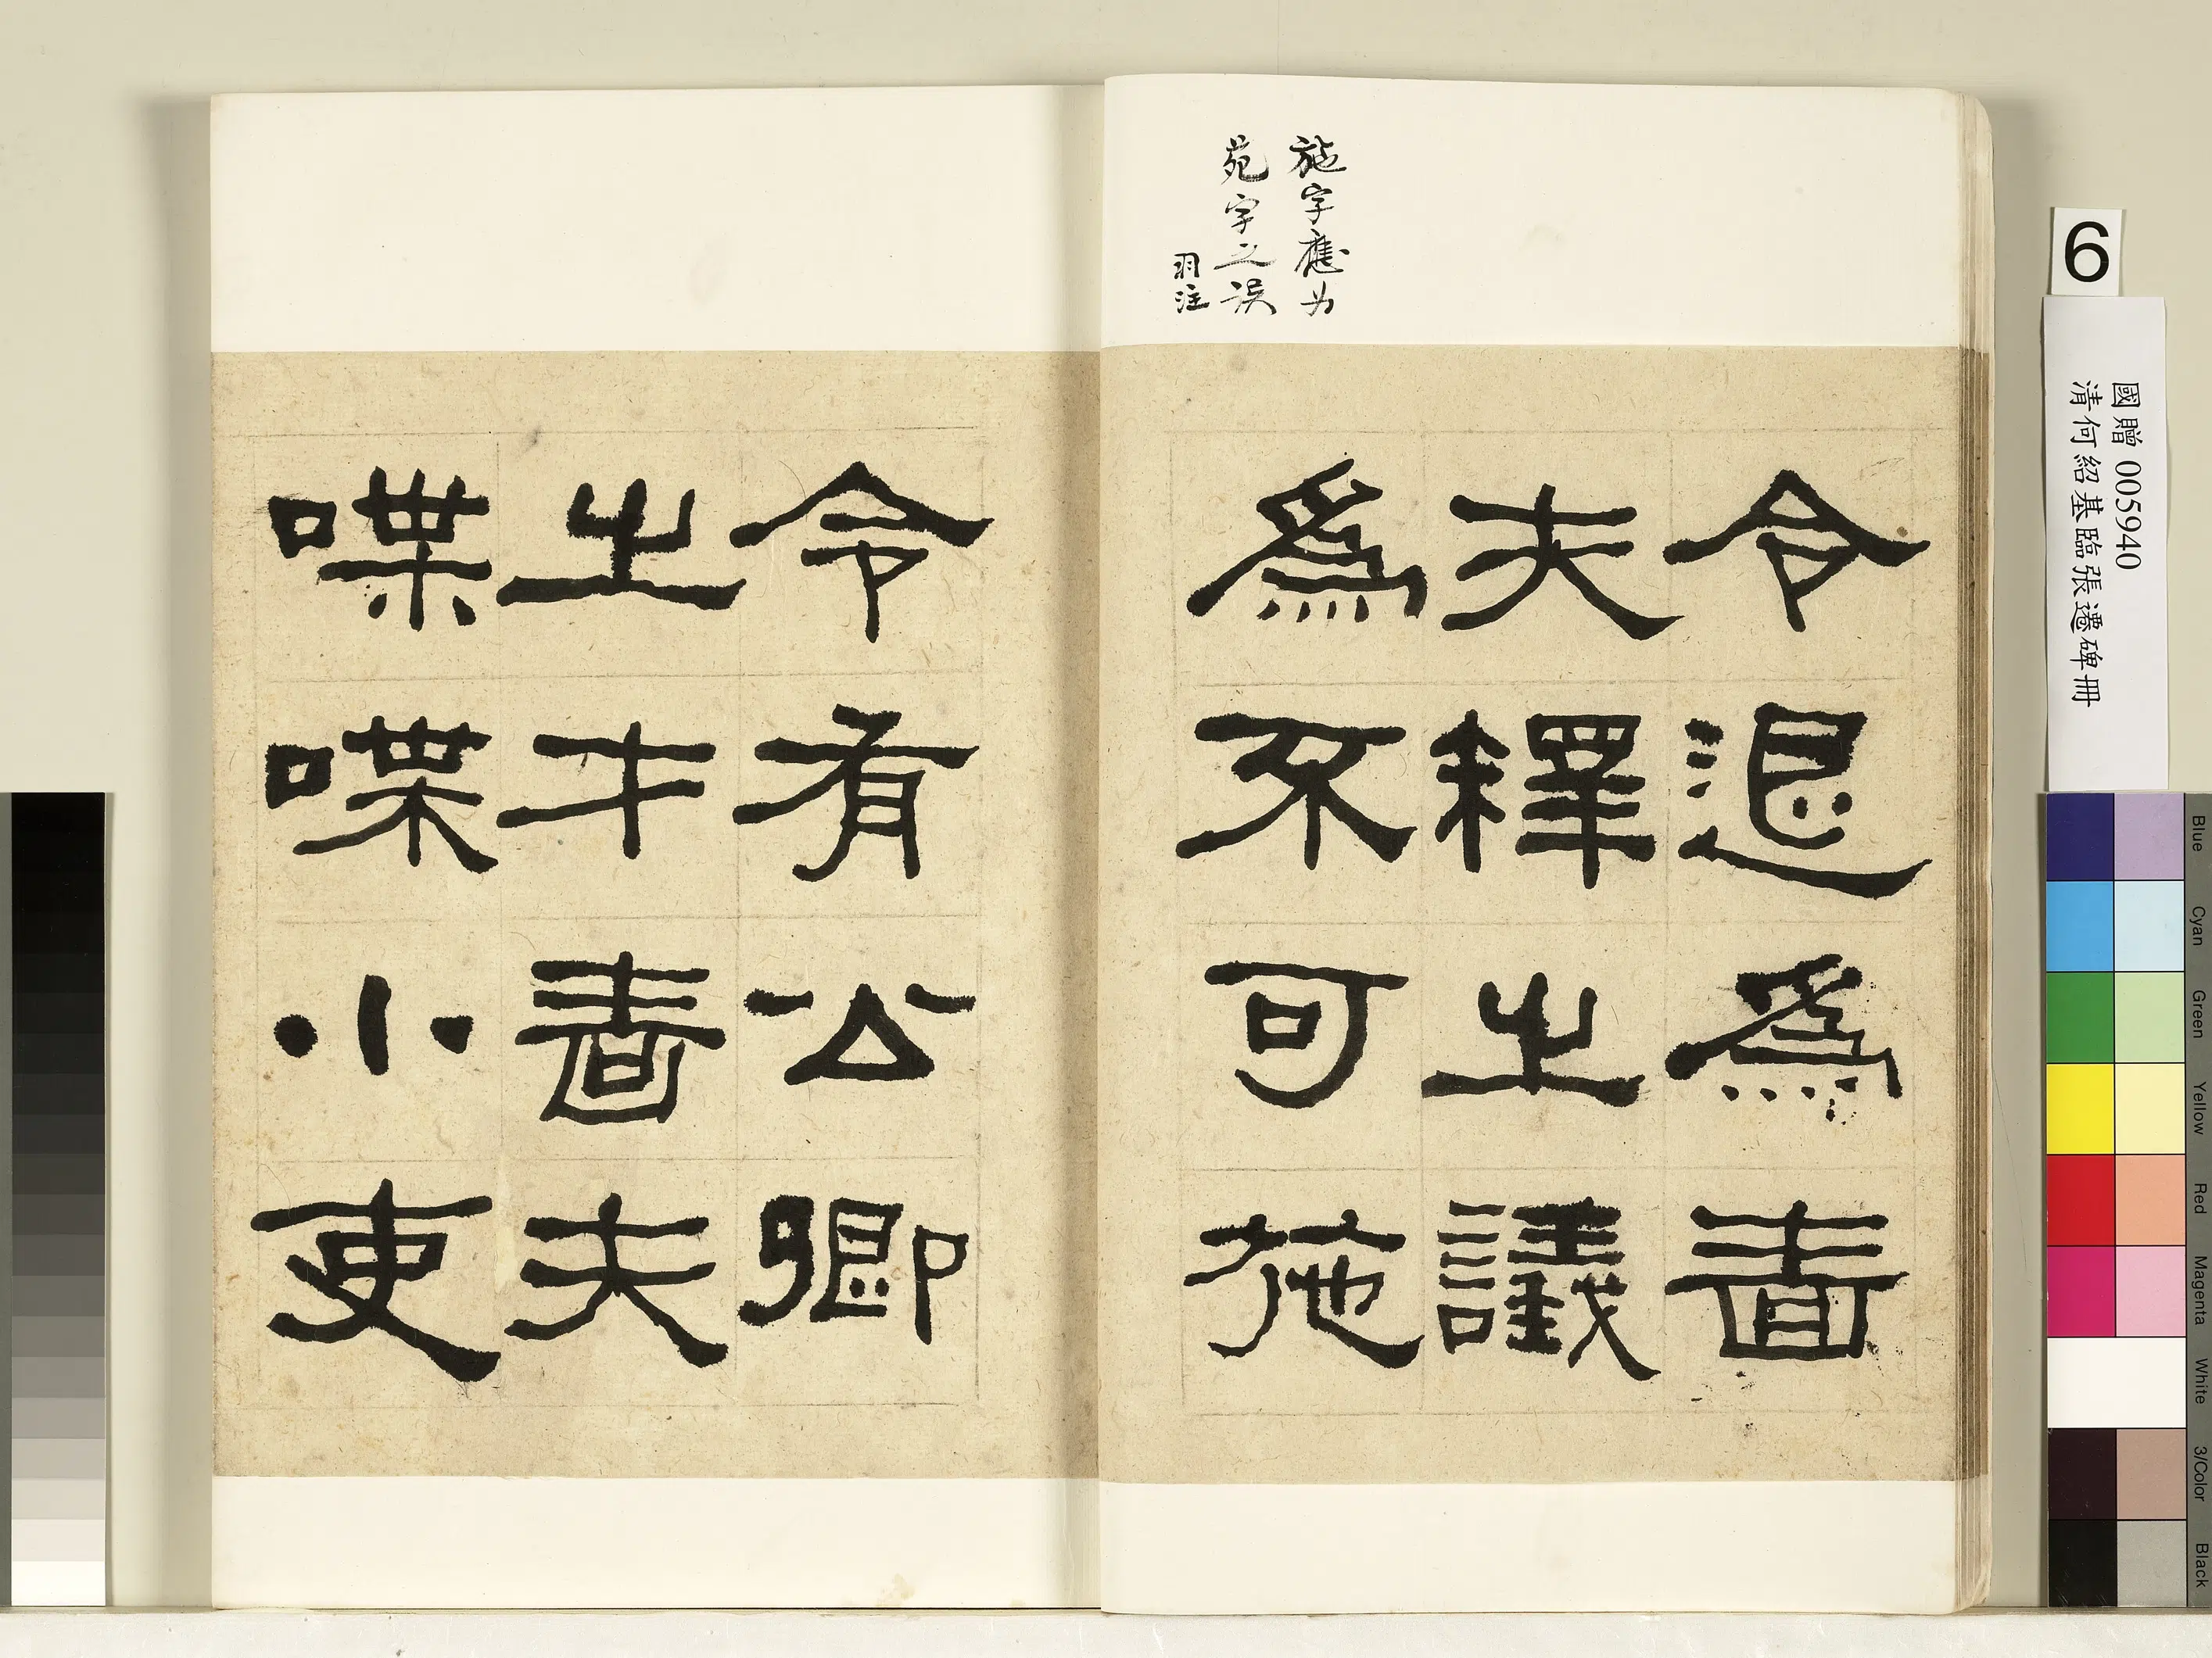 施字應为
苑字之误
羽注
令退爲嗇
夫釋之議
爲不可施
令有公卿
之才嗇夫
喋喋小吏
6
國贈 005940
清何紹基臨張遷碑冊
Blue
Cyan
Green
Yellow
Red
Magenta
White
3/Color
Black